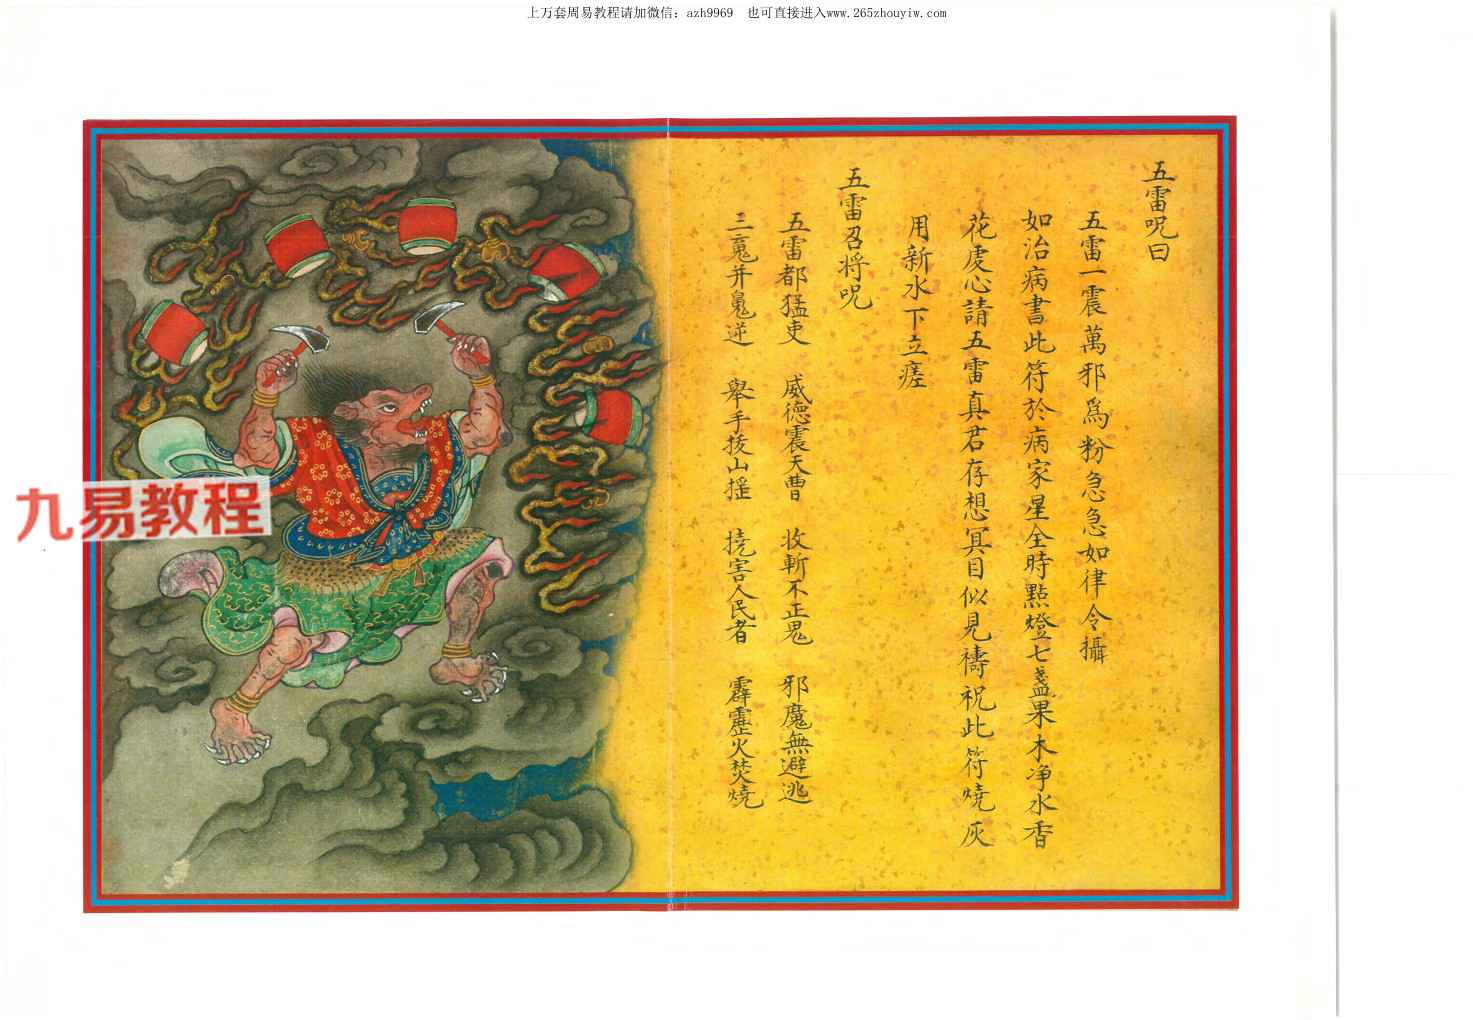 上万套周易教程请加微信：azh9969 也可直接进入www.265zhouyiw.com
五雷呪曰
五雷一震萬邪為粉急急如律令攝
如治病書此符於病家星全時點燈七盞果木净水香
花虔心請五雷真君存想冥目似見禱祝此符燒灰
用新水下立瘥
五雷召将呪
五雷都猛吏 威德震天曹 收斬不正鬼 邪魔無避逃
三䰡并䰡逆 舉手拔山摇 撓害人民者 霹靂火焚燒
九易教程